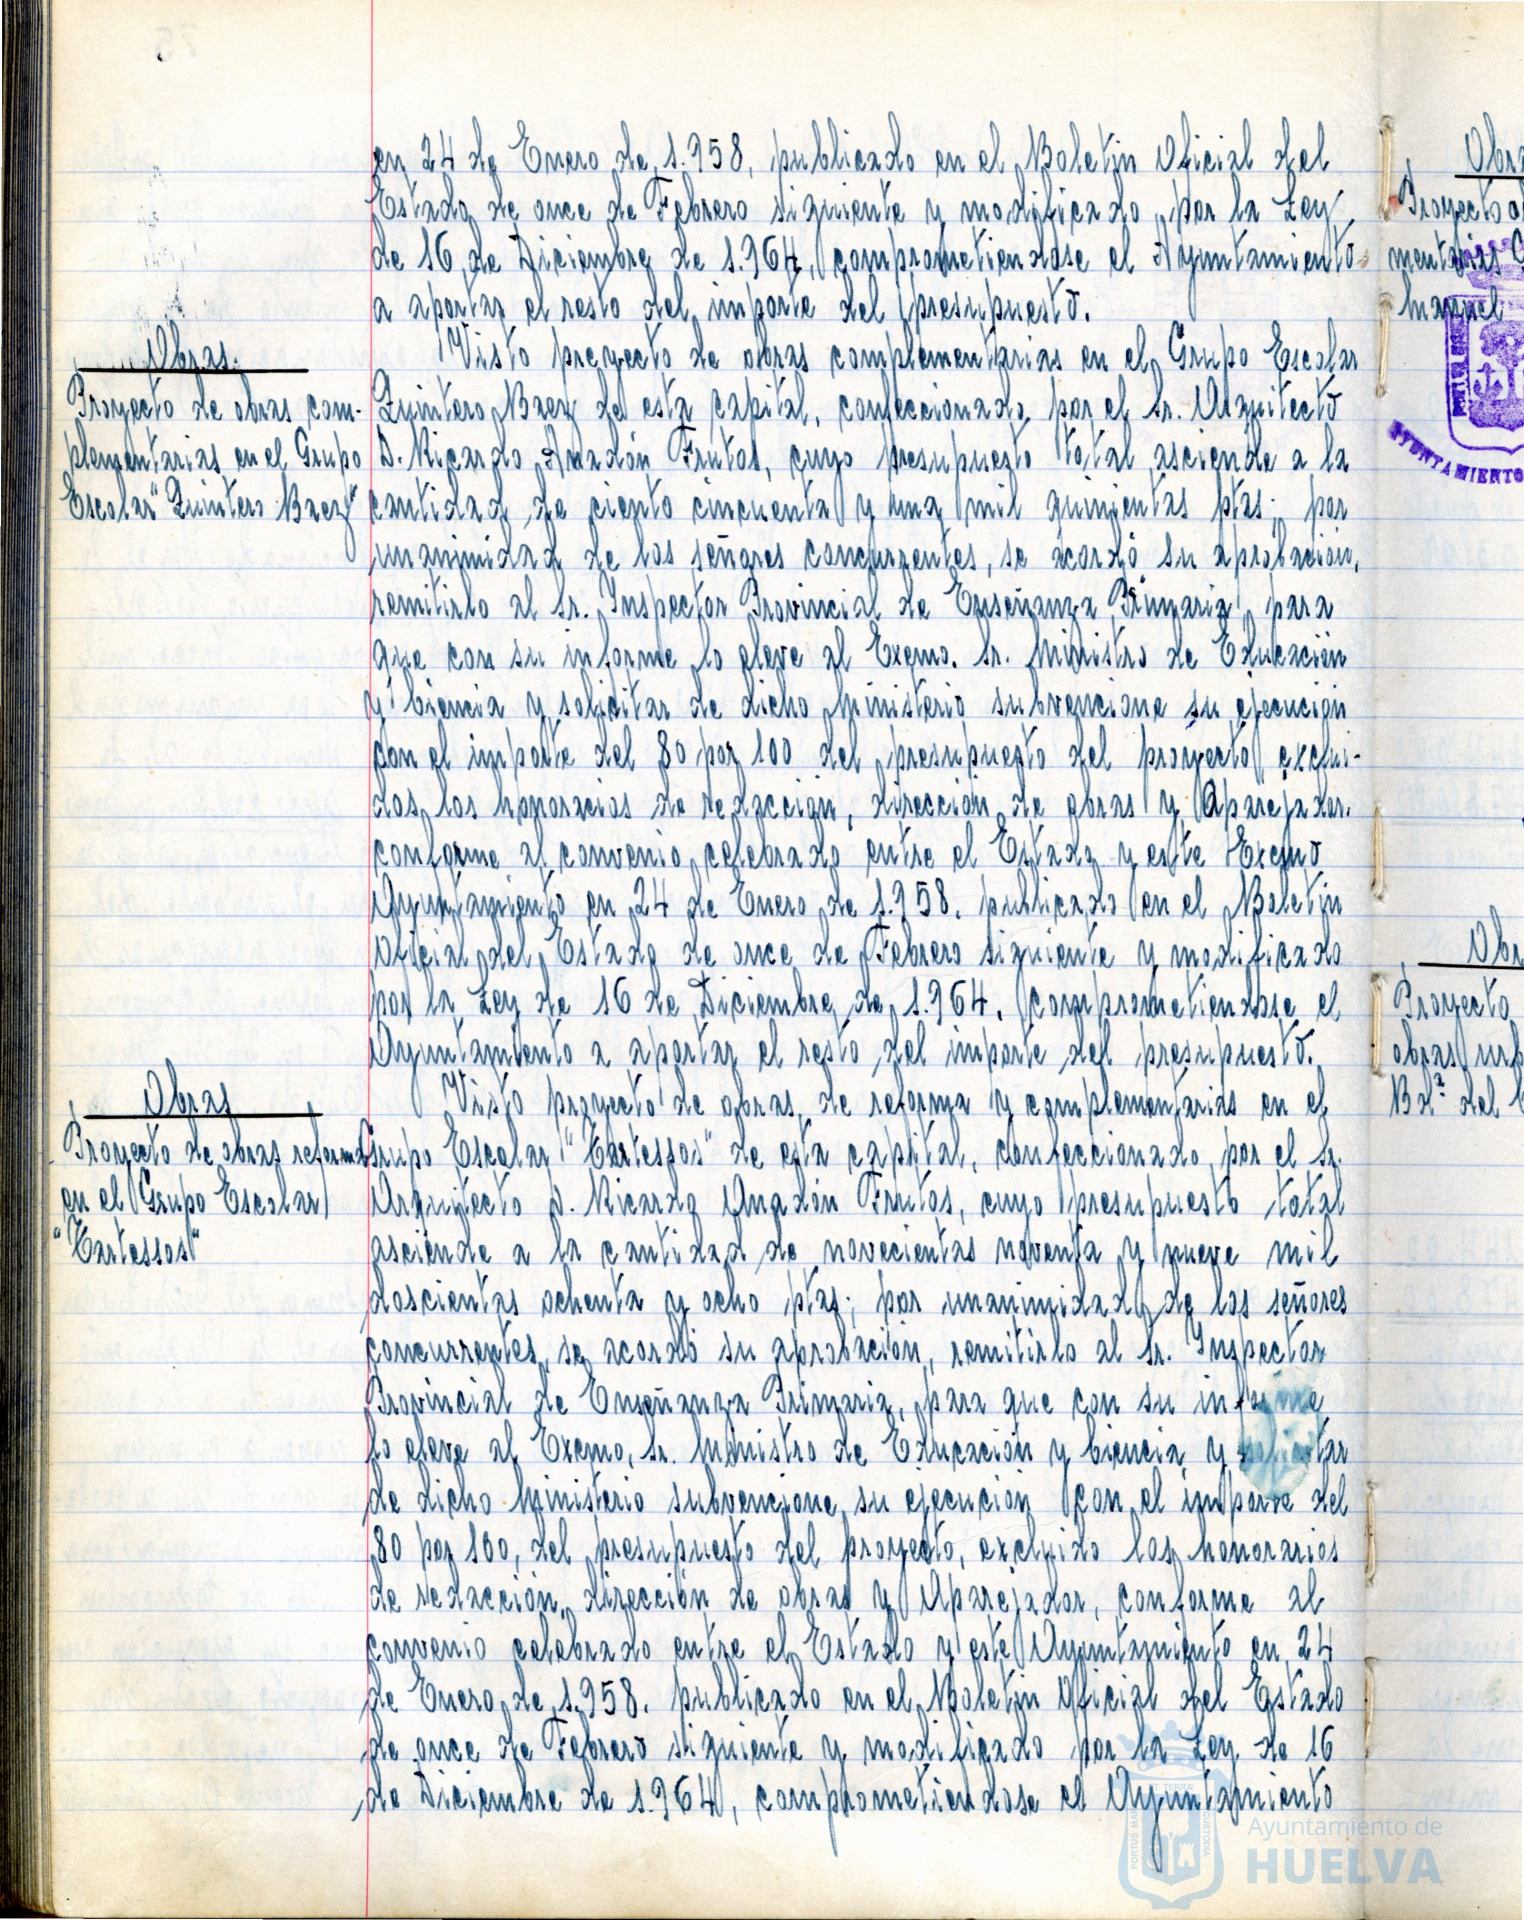 en 24 de Enero de 1.958, publicado en el Boletin Oficial del
Estado de once de Febrero siguiente y modificado por la Ley
de 16 de Diciembre de 1.964, comprometiendose el Ayuntamiento
a aportar el resto del importe del presupuesto.
Obras.
Proyecto de obras com-
plementarias en el Grupo
Escolar "Quintero Baez"
Visto proyecto de obras complementarias en el Grupo Escolar
Quintero Baez de esta capital, confeccionado por el Sr. Arquitecto
D. Ricardo Anadón Frutos, cuyo presupuesto total asciende a la
cantidad de ciento cincuenta y una mil quinientas ptas; por
unanimidad de los señores concurrentes, se acordó su aprobación,
remitirlo al Sr. Inspector Provincial de Enseñanza Primaria, para
que con su informe lo eleve al Excmo. Sr. Ministro de Educación
y Ciencia y solicitar de dicho Ministerio subvencione su ejecución
con el importe del 80 por 100 del presupuesto del proyecto exclui-
dos los honorarios de redacción, dirección de obras y Aparejador.
conforme al convenio celebrado entre el Estado y este Excmo
Ayuntamiento en 24 de Enero de 1.958. publicado en el Boletin
Oficial del Estado de once de Febrero siguiente y modificado
por la Ley de 16 de Diciembre de 1.964, comprometiendose el
Ayuntamiento a aportar el resto del importe del presupuesto.
Obras
Proyecto de obras reforma
en el Grupo Escolar
"Tartessos"
Visto proyecto de obras de reforma y complementarias en el
Grupo Escolar "Tartessos" de esta capital, confeccionado por el Sr.
Arquitecto D. Ricardo Anadón Frutos, cuyo presupuesto total
asciende a la cantidad de novecientas noventa y nueve mil
doscientas ochenta y ocho ptas; por unanimidad de los señores
concurrentes, se acordó su aprobación, remitirlo al Sr. Inspector
Provincial de Enseñanza Primaria, para que con su informe
lo eleve al Excmo, Sr. Ministro de Educación y Ciencia y solicitar
de dicho Ministerio subvencione su ejecución con el importe del
80 por 100, del presupuesto del proyecto, excluido los honorarios
de redacción, dirección de obras y Aparejador, conforme al
convenio celebrado entre el Estado y este Ayuntamiento en 24
de Enero de 1.958. publicado en el Boletin Oficial del Estado
de once de Febrero siguiente y modificado por la Ley de 16
de Diciembre de 1.964, comprometiendose el Ayuntamiento
Proyecto
mentarias
Manuel
AYUNTAMIENTO
Proyecto
obras urb
Bdª del
Ayuntamiento de
HUELVA